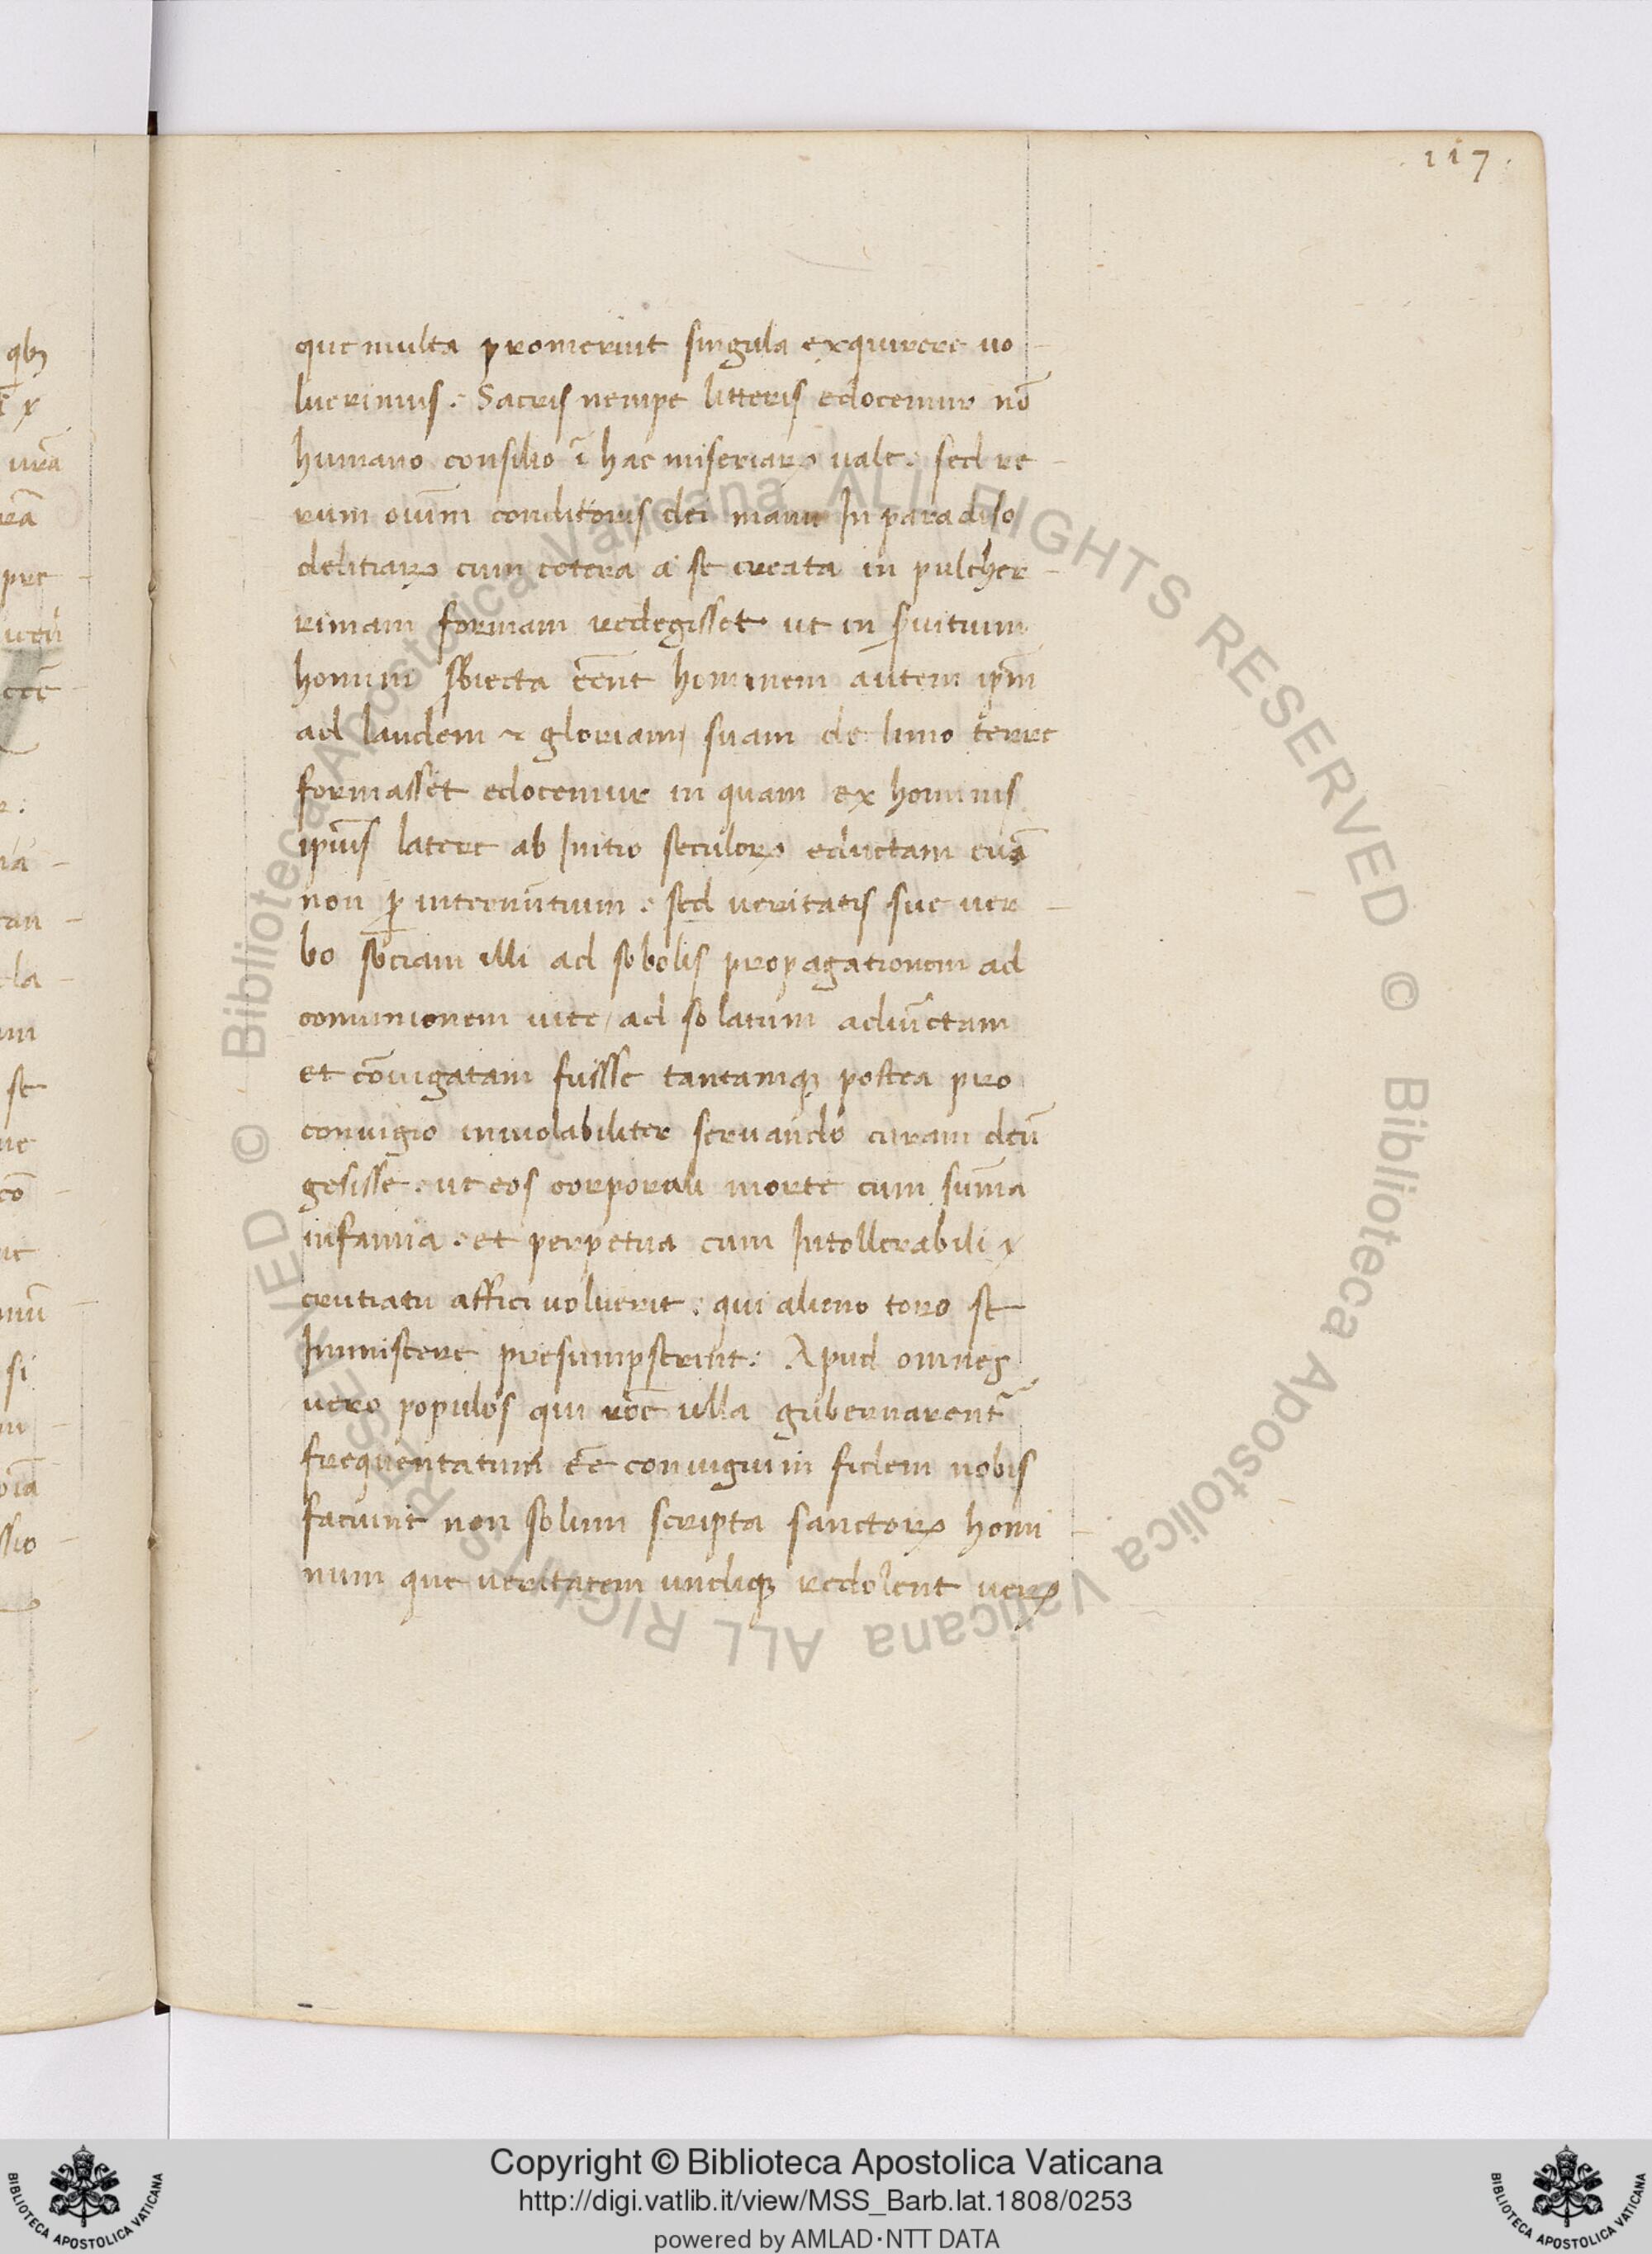 .117.
que multa promeriut singula exquirere uo-
luerimus. Sacris nempe litteris edocemur nō
humano consilio ī hac miseriaꝝ ualle. sed re-
rum oīum conditoris dei manu In paradiso
delitiaꝝ cum cetera a se creata in pulcher-
rimam formam redegisset ut in ẜuitium
homini sbiecta eēnt hominem autem ip̄m
ad laudem & gloriam suam de limo terre
formasset edocemur in quam ex hominis
ip̄ius latere ab Initio seculoꝝ eductam euā
non ꝑ internūtium. sed ueritatis sue uer-
bo sociam illi ad sobolis propagationem ad
comunionem uite/ad solatium adiūctam
et cōiugatam fuisse tantamqꝫ postea pro
coniugio inuiolabiliter seruando curam deū
gesisse. ut eos corporali morte cum sūma
infamia. et perpetua cum Intollerabili
crutiatu affici uoluerit. qui alieno toro se
Immiscere presumpserint: Apud omnes
uero populos qui rōe ulla gubernarent᷑
frequentatum eē coniugium fidem nobis
faciunt non solum scripta sanctoꝝ homi-
num que ueritatem undiqꝫ redolent ueꝝ
Copyright © Biblioteca Apostolica Vaticana
http://digi.vatlib.it/view/MSS_Barb.lat.1808/0253
powered by AMLAD·NTT DATA
BIBLIOTECA APOSTOLICA VATICANA
BIBLIOTECA APOSTOLICA VATICANA
© Biblioteca Apostolica Vaticana ALL RIGHTS RESERVED
© Biblioteca Apostolica Vaticana ALL RIGHTS RESERVED